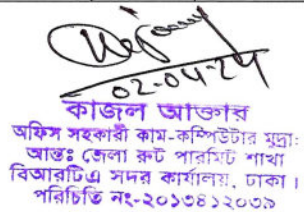 02-04-24
কাজল আক্তার
অফিস সহকারী কাম-কম্পিউটার মুদ্রা:
আন্তঃ জেলা রুট পারমিট শাখা
বিআরটিএ সদর কার্যালয়, ঢাকা।
পরিচিতি নং-২০১৩৪১২০৩৯